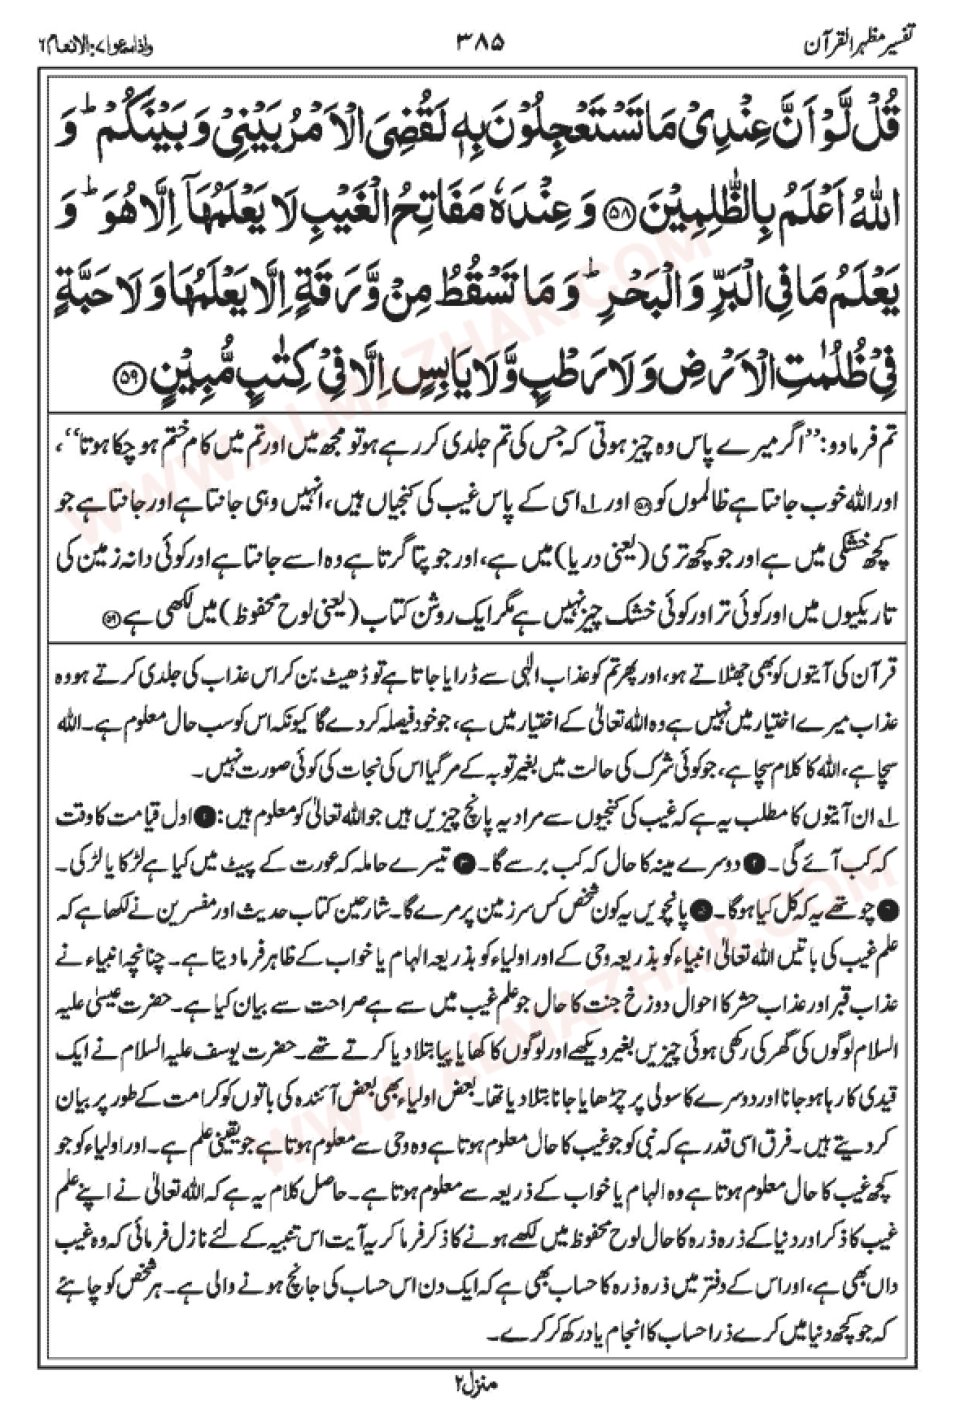 تفسیر مظہر القرآن
۳۸۵
واذاسمعوا۷: الانعام۶
قُلْ لَّوْ اَنَّ عِنْدِیْ مَا تَسْتَعْجِلُوْنَ بِهٖ لَقُضِیَ الْاَمْرُ بَیْنِیْ وَ بَیْنَكُمْ ؕ وَ
اللّٰهُ اَعْلَمُ بِالظّٰلِمِیْنَ ﴿۵۸﴾ وَ عِنْدَهٗ مَفَاتِحُ الْغَیْبِ لَا یَعْلَمُهَاۤ اِلَّا هُوَ ؕ وَ
یَعْلَمُ مَا فِی الْبَرِّ وَ الْبَحْرِ ؕ وَ مَا تَسْقُطُ مِنْ وَّرَقَةٍ اِلَّا یَعْلَمُهَا وَ لَا حَبَّةٍ
فِیْ ظُلُمٰتِ الْاَرْضِ وَ لَا رَطْبٍ وَّ لَا یَابِسٍ اِلَّا فِیْ كِتٰبٍ مُّبِیْنٍ ﴿۵۹﴾
تم فرما دو: ’’اگر میرے پاس وہ چیز ہوتی کہ جس کی تم جلدی کر رہے ہو تو مجھ میں اور تم میں کام ختم ہو چکا ہوتا‘‘،
اور اللہ خوب جانتا ہے ظالموں کو ﴿۵۸﴾ اور ۱؎ اسی کے پاس غیب کی کنجیاں ہیں، انہیں وہی جانتا ہے اور جانتا ہے جو
کچھ خشکی میں ہے اور جو کچھ تری (یعنی دریا) میں ہے، اور جو پتا گرتا ہے وہ اسے جانتا ہے اور کوئی دانہ زمین کی
تاریکیوں میں اور کوئی تر اور کوئی خشک چیز نہیں ہے مگر ایک روشن کتاب (یعنی لوح محفوظ) میں لکھی ہے ﴿۵۹﴾
قرآن کی آیتوں کو بھی جھٹلاتے ہو، اور پھر تم کو عذاب الٰہی سے ڈرایا جاتا ہے تو ڈھیٹ بن کر اس عذاب کی جلدی کرتے ہو وہ
عذاب میرے اختیار میں نہیں ہے وہ اللہ تعالیٰ کے اختیار میں ہے، جو خود فیصلہ کر دے گا کیونکہ اس کو سب حال معلوم ہے۔ اللہ
سچا ہے، اللہ کا کلام سچا ہے، جو کوئی شرک کی حالت میں بغیر توبہ کے مر گیا اس کی نجات کی کوئی صورت نہیں۔
۱؎ ان آیتوں کا مطلب یہ ہے کہ غیب کی کنجیوں سے مراد یہ پانچ چیزیں ہیں جو اللہ تعالیٰ کو معلوم ہیں: ❶ اول قیامت کا وقت
کہ کب آئے گی۔ ❷ دوسرے مینہ کا حال کہ کب برسے گا۔ ❸ تیسرے حاملہ کہ عورت کے پیٹ میں کیا ہے لڑکا یا لڑکی۔
❹ چوتھے یہ کہ کل کیا ہوگا۔ ❺ پانچویں یہ کون شخص کس سرزمین پر مرے گا۔ شارحین کتاب حدیث اور مفسرین نے لکھا ہے کہ
علم غیب کی باتیں اللہ تعالیٰ انبیاء کو بذریعہ وحی کے اور اولیاء کو بذریعہ الہام یا خواب کے ظاہر فرما دیتا ہے۔ چنانچہ انبیاء نے
عذاب قبر اور عذاب حشر کا احوال دوزخ جنت کا حال جو علم غیب میں سے ہے صراحت سے بیان کیا ہے۔ حضرت عیسیٰ علیہ
السلام لوگوں کی گھر کی رکھی ہوئی چیزیں بغیر دیکھے اور لوگوں کا کھایا پیا بتلا دیا کرتے تھے۔ حضرت یوسف علیہ السلام نے ایک
قیدی کا رہا ہو جانا اور دوسرے کا سولی پر چڑھایا جانا بتلا دیا تھا۔ بعض اولیاء بھی بعض آئندہ کی باتوں کو کرامت کے طور پر بیان
کر دیتے ہیں۔ فرق اسی قدر ہے کہ نبی کو جو غیب کا حال معلوم ہوتا ہے وہ وحی سے معلوم ہوتا ہے جو یقینی علم ہے۔ اور اولیاء کو جو
کچھ غیب کا حال معلوم ہوتا ہے وہ الہام یا خواب کے ذریعہ سے معلوم ہوتا ہے۔ حاصل کلام یہ ہے کہ اللہ تعالیٰ نے اپنے علم
غیب کا ذکر اور دنیا کے ذرہ ذرہ کا حال لوح محفوظ میں لکھے ہونے کا ذکر فرما کر یہ آیت اس تنبیہ کے لئے نازل فرمائی کہ وہ غیب
داں بھی ہے، اور اس کے دفتر میں ذرہ ذرہ کا حساب بھی ہے کہ ایک دن اس حساب کی جانچ ہونے والی ہے۔ ہر شخص کو چاہئے
کہ جو کچھ دنیا میں کرے ذرا حساب کا انجام یاد رکھ کر کرے۔
منزل۲
WWW.ALMAZHAR.COM
WWW.ALMAZHAR.COM